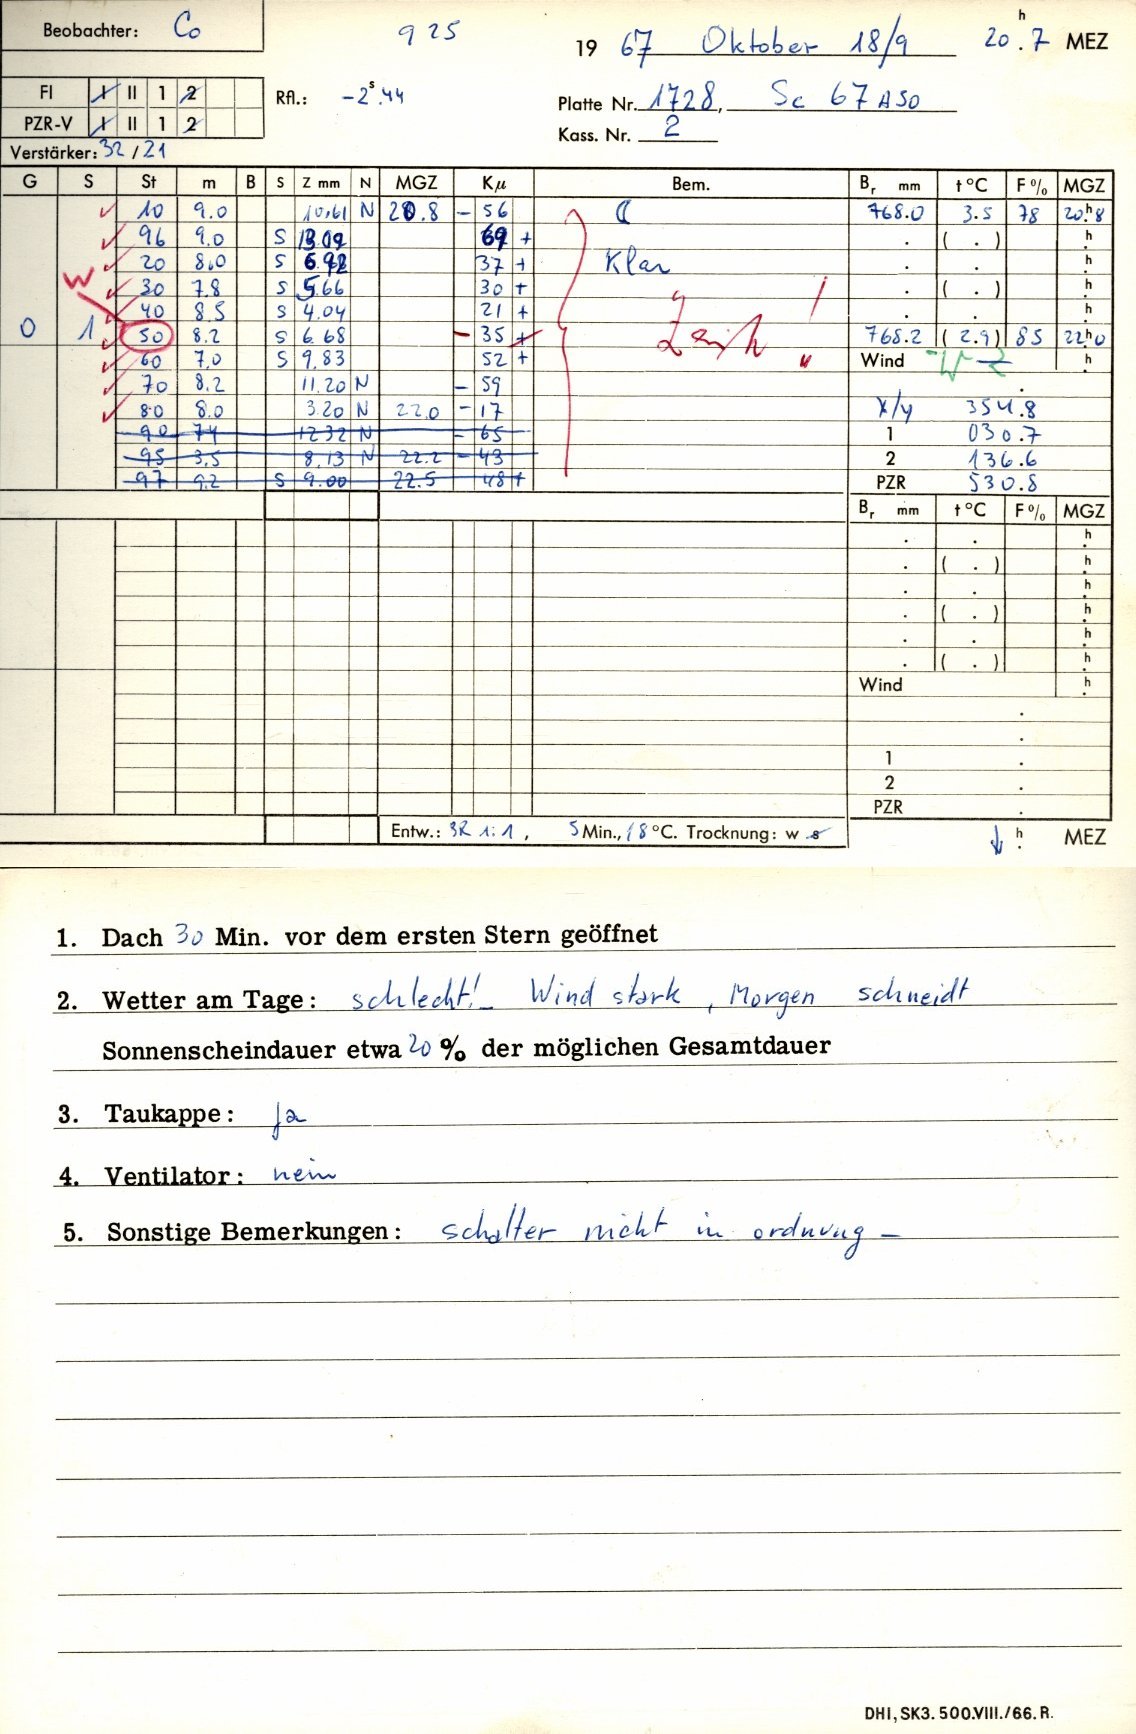 Beobachter: Co 925 19 67 Oktober 18/9 20h.7 MEZ
FI I II 1 2 Rfl.: -2s.44 Platte Nr. 1728, Sc 67 ASO
PZR-V I II 1 2 Kass. Nr. 2
Verstärker: 32 / 21
G S St m B S Z mm N MGZ Kμ Bem. Br mm t °C F % MGZ
10 9.0 10.61 N 20.8 - 56 ☾ 768.0 3.5 78 20h.8
96 9.0 S 13.09 69 + . ( . ) h
20 8.0 S 6.92 37 + Klar . . h
W 30 7.8 S 5.66 30 + . ( . ) h
40 8.5 S 4.04 21 + . . h
0 1 50 8.2 S 6.68 - 35 + 768.2 ( 2.9 ) 85 22h.0
60 7.0 S 9.83 52 + Wind W 2 h
70 8.2 11.20 N - 59 .
80 8.0 3.20 N 22.0 - 17 x/y 354.8
90 7.4 12.32 N - 65 1 030.7
95 3.5 8.13 N 22.2 - 43 2 136.6
97 9.2 S 9.00 22.5 48 + PZR 530.8
Br mm t °C F % MGZ
. . h
. ( . ) h
. . h
. ( . ) h
. . h
. ( . ) h
Wind h
.
.
1 .
2 .
PZR .
Entw.: 3R 1:1 , 5 Min., 18 °C. Trocknung: w s ↓ h. MEZ
1. Dach 30 Min. vor dem ersten Stern geöffnet
2. Wetter am Tage: schlecht! - Wind stark, Morgen schneidt
Sonnenscheindauer etwa 20 % der möglichen Gesamtdauer
3. Taukappe: Ja
4. Ventilator: nein
5. Sonstige Bemerkungen: schalter nicht in ordnung -
DHI, SK3. 500.VIII./66. R.